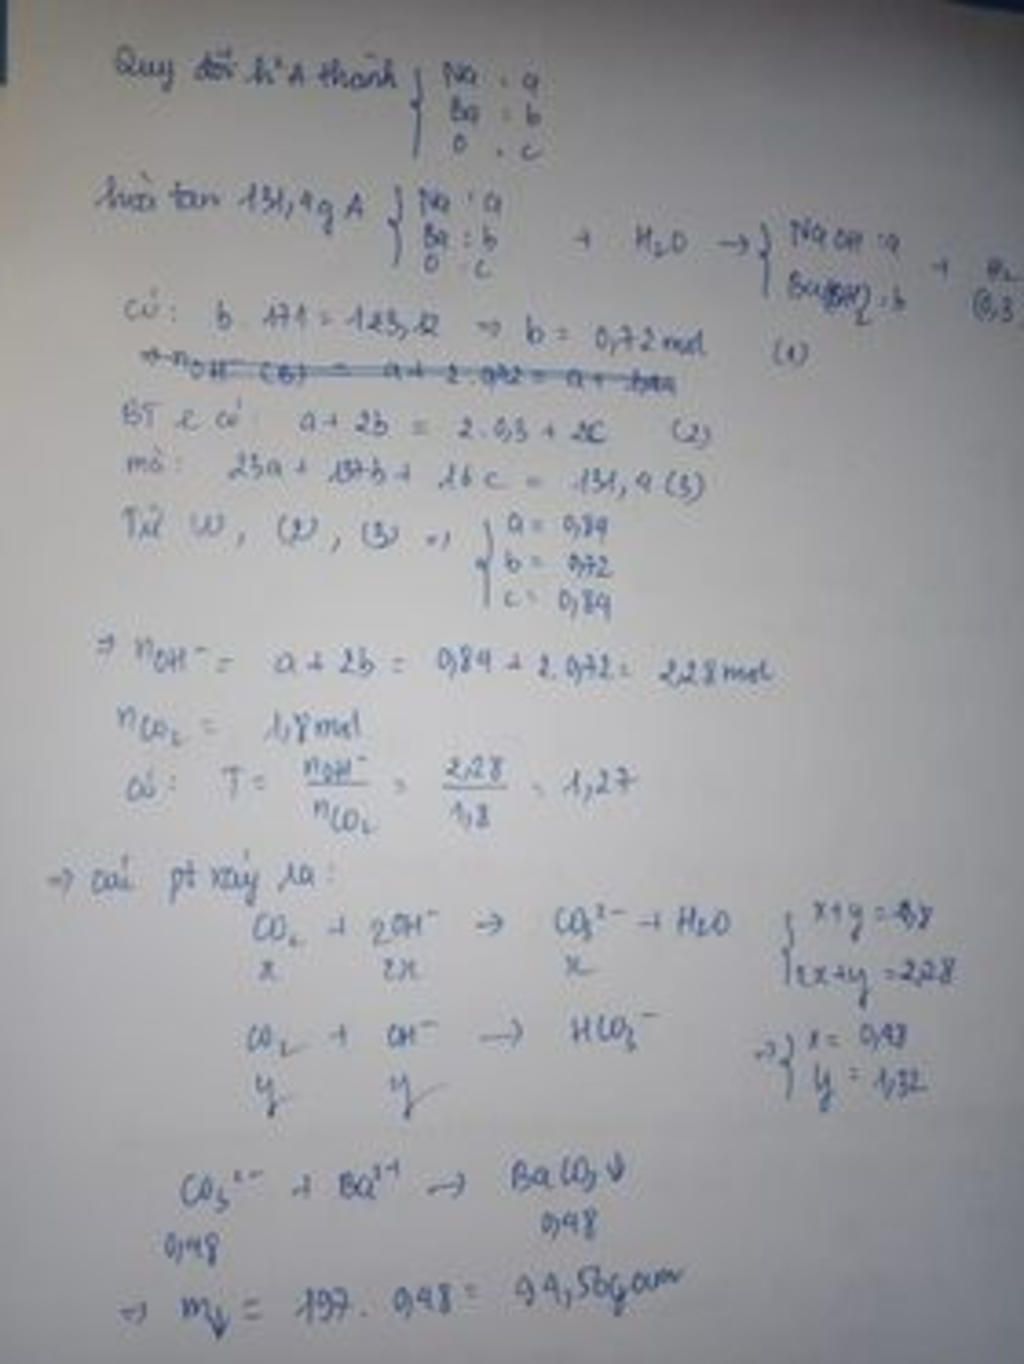 Quy đổi h² A thành { Na : a
Ba : b
O : c
hòa tan 131,4g A { Na : a
Ba : b
O : c
+ H₂O → { NaOH : a
Ba(OH)₂ : b
+ H₂
(0,3
có: b . 171 = 123,12 ⇒ b = 0,72 mol (1)
BT e có: a + 2b = 2.0,3 + 2c (2)
mà: 23a + 137b + 16c = 131,4 (3)
Từ (1), (2), (3) ⇒ { a = 0,84
b = 0,72
c = 0,84
⇒ nOH⁻ = a + 2b = 0,84 + 2.0,72 = 2,28 mol
nCO₂ = 1,8 mol
có: T = nOH⁻/nCO₂ = 2,28/1,8 = 1,27
⇒ các pt xảy ra:
CO₂ + 2OH⁻ → CO₃²⁻ + H₂O { x+y = 1,8
x 2x x 2x+y = 2,28
CO₂ + OH⁻ → HCO₃⁻ ⇒ { x = 0,48
y y y = 1,32
CO₃²⁻ + Ba²⁺ → BaCO₃↓
0,48 0,48
⇒ m↓ = 197 . 0,48 = 94,56 gam